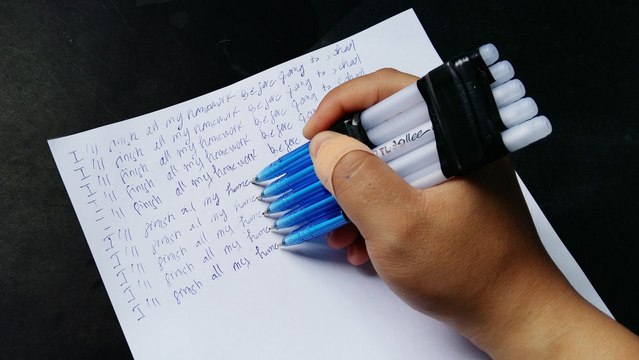 I'll finish all my homework before going to school
I'll finish all my homework before going to school
I'll finish all my homework before going to school
I'll finish all my homework before
I'll finish all my homework
I'll finish all my home
I'll finish all my home
I'll finish all my home
I'll finish all my home
I'll finish all my home